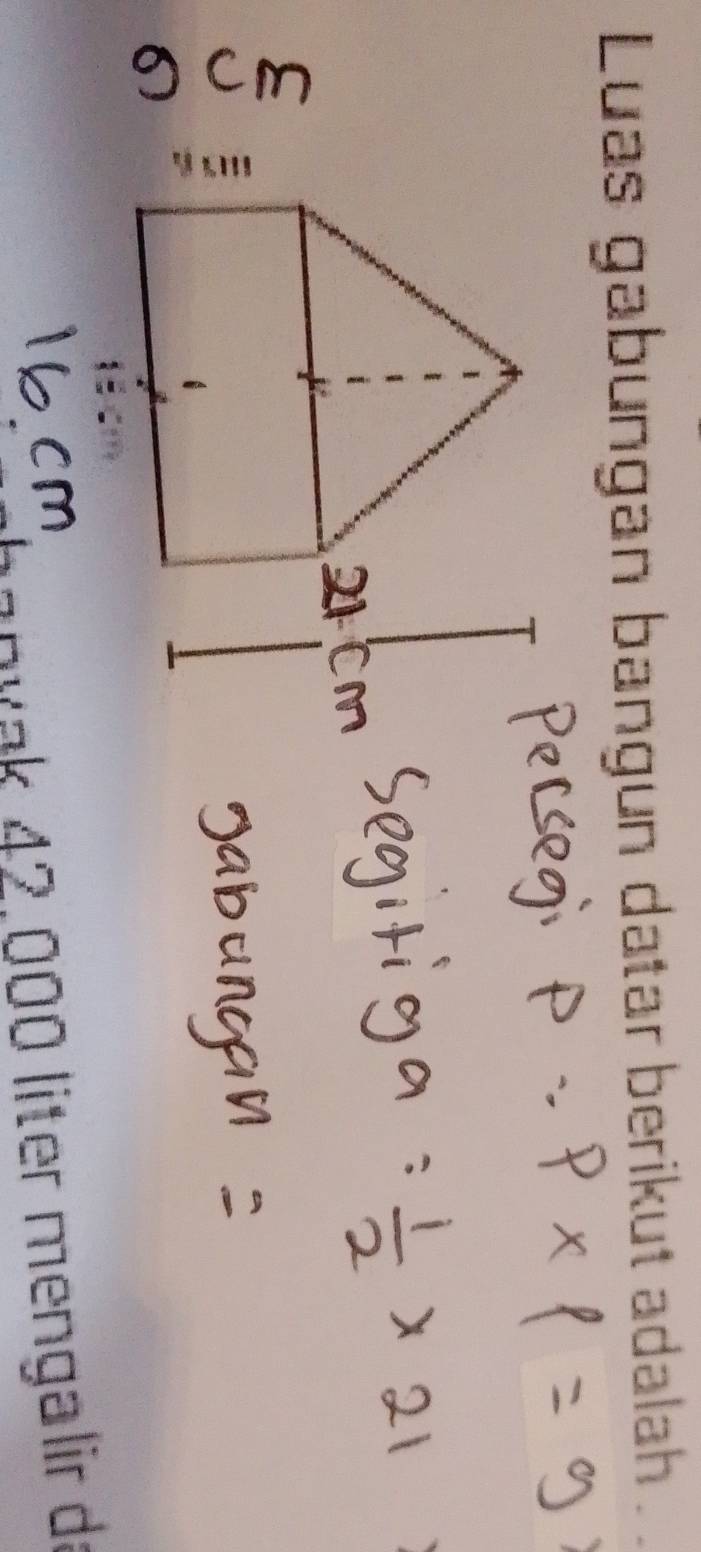 Luas gabungan bangun datar berikut adalah...
Persegi P : P x l = 9 x
9 cm
21 cm
Segitiga : 1/2 x 21 x
gabungan =
16 cm
42.000 liter mengalir da